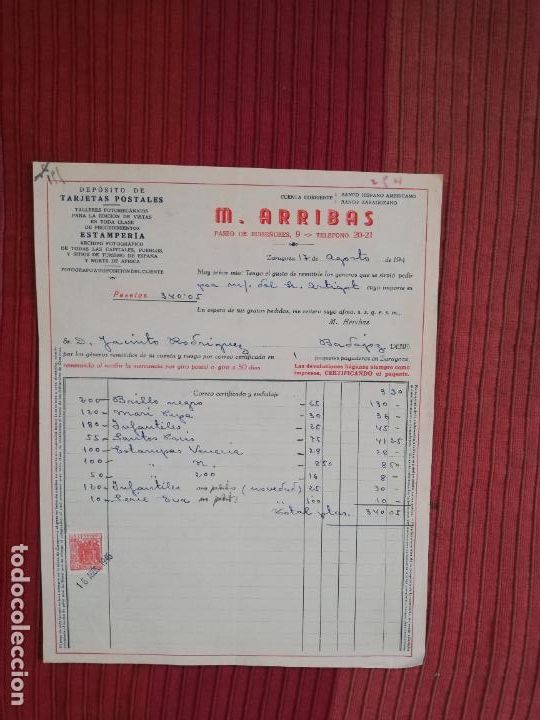 DEPÓSITO DE
TARJETAS POSTALES
TALLERES FOTOMECÁNICOS
PARA LA EDICIÓN DE VISTAS
EN TODA CLASE
DE PROCEDIMIENTOS
ESTAMPERÍA
ARCHIVO FOTOGRÁFICO
DE TODAS LAS CAPITALES, PUEBLOS,
Y SITIOS DE TURISMO DE ESPAÑA
Y NORTE DE ÁFRICA
FOTÓGRAFO A DISPOSICIÓN DEL CLIENTE
CUENTA CORRIENTE
BANCO HISPANO AMERICANO
BANCO ZARAGOZANO
M. ARRIBAS
PASEO DE RUISEÑORES, 9 - TELÉFONO 20-21
Zaragoza 17 de Agosto de 194
Muy señor mío: Tengo el gusto de remitirle los géneros que se sirvió pedir
por m/. del Sr. Artigot cuyo importe es
Pesetas 340'05
En espera de sus gratos pedidos, me reitero suyo afmo. s. s. q. e. s. m.,
M. Arribas
D. Jacinto Rodriguez Badajoz DEBE
por los géneros remitidos de su cuenta y riesgo por correo certificado en 1 paquetes pagaderos en Zaragoza
remesando al recibir la mercancía por giro postal o giro a 30 días.
Las devoluciones háganse siempre como
impresos, CERTIFICANDO el paquete.
Correo certificado y embalaje 3 30
200 - Brillo negro - 65 130 -
120 - Mari - 30 36 -
180 - Infantiles - 25 45 -
55 - Santos - 75 41 25
100 - Estampas Venecia - 28 28 -
100 - " n. - 8 50 8 50
50 - " 200 - 16 8 -
120 - Infantiles (novedad) 25 30 -
10 - Serie " 100 10 -
Total ptas. 340 05
16 AGO. 1945
todocoleccion.net